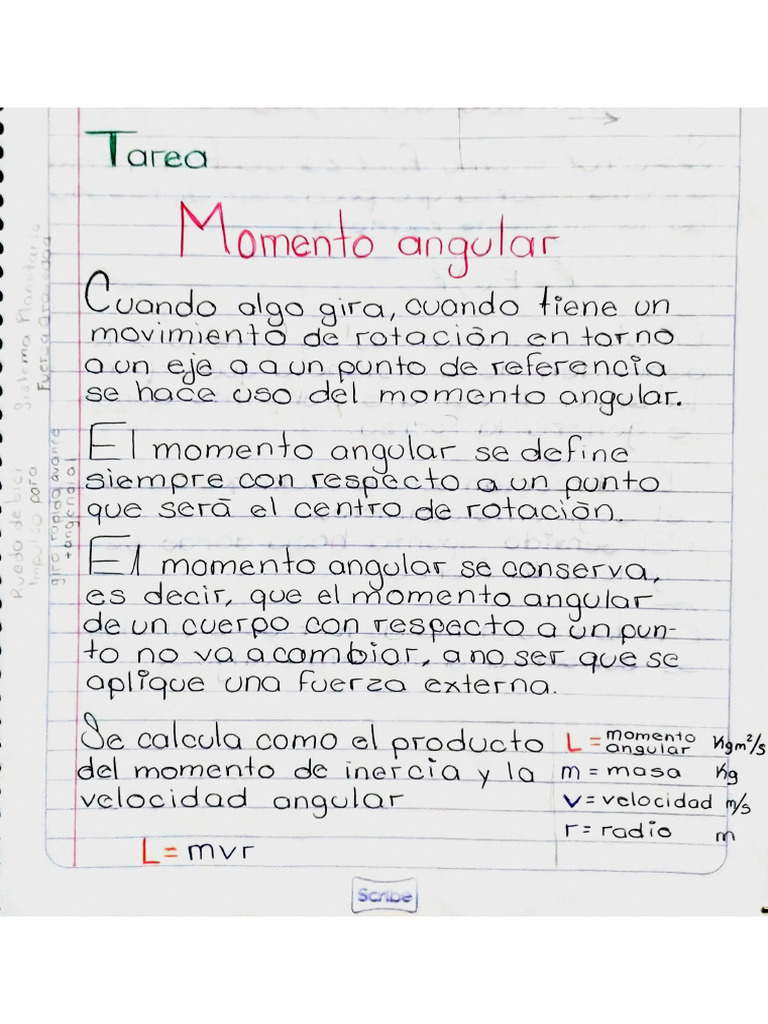 Tarea
Momento angular
Cuando algo gira, cuando tiene un
movimiento de rotación en torno
a un eje o a un punto de referencia
se hace uso del momento angular.
El momento angular se define
siempre con respecto a un punto
que será el centro de rotación.
El momento angular se conserva,
es decir, que el momento angular
de un cuerpo con respecto a un pun-
to no va a cambiar, a no ser que se
aplique una fuerza externa.
Se calcula como el producto
del momento de inercia y la
velocidad angular
L = mvr
L = momento angular Kgm²/s
m = masa Kg
v = velocidad m/s
r = radio m
Sistema Planetario
Rueda de bici
Impulso para
giro rapido avance
tangencial
Scribe